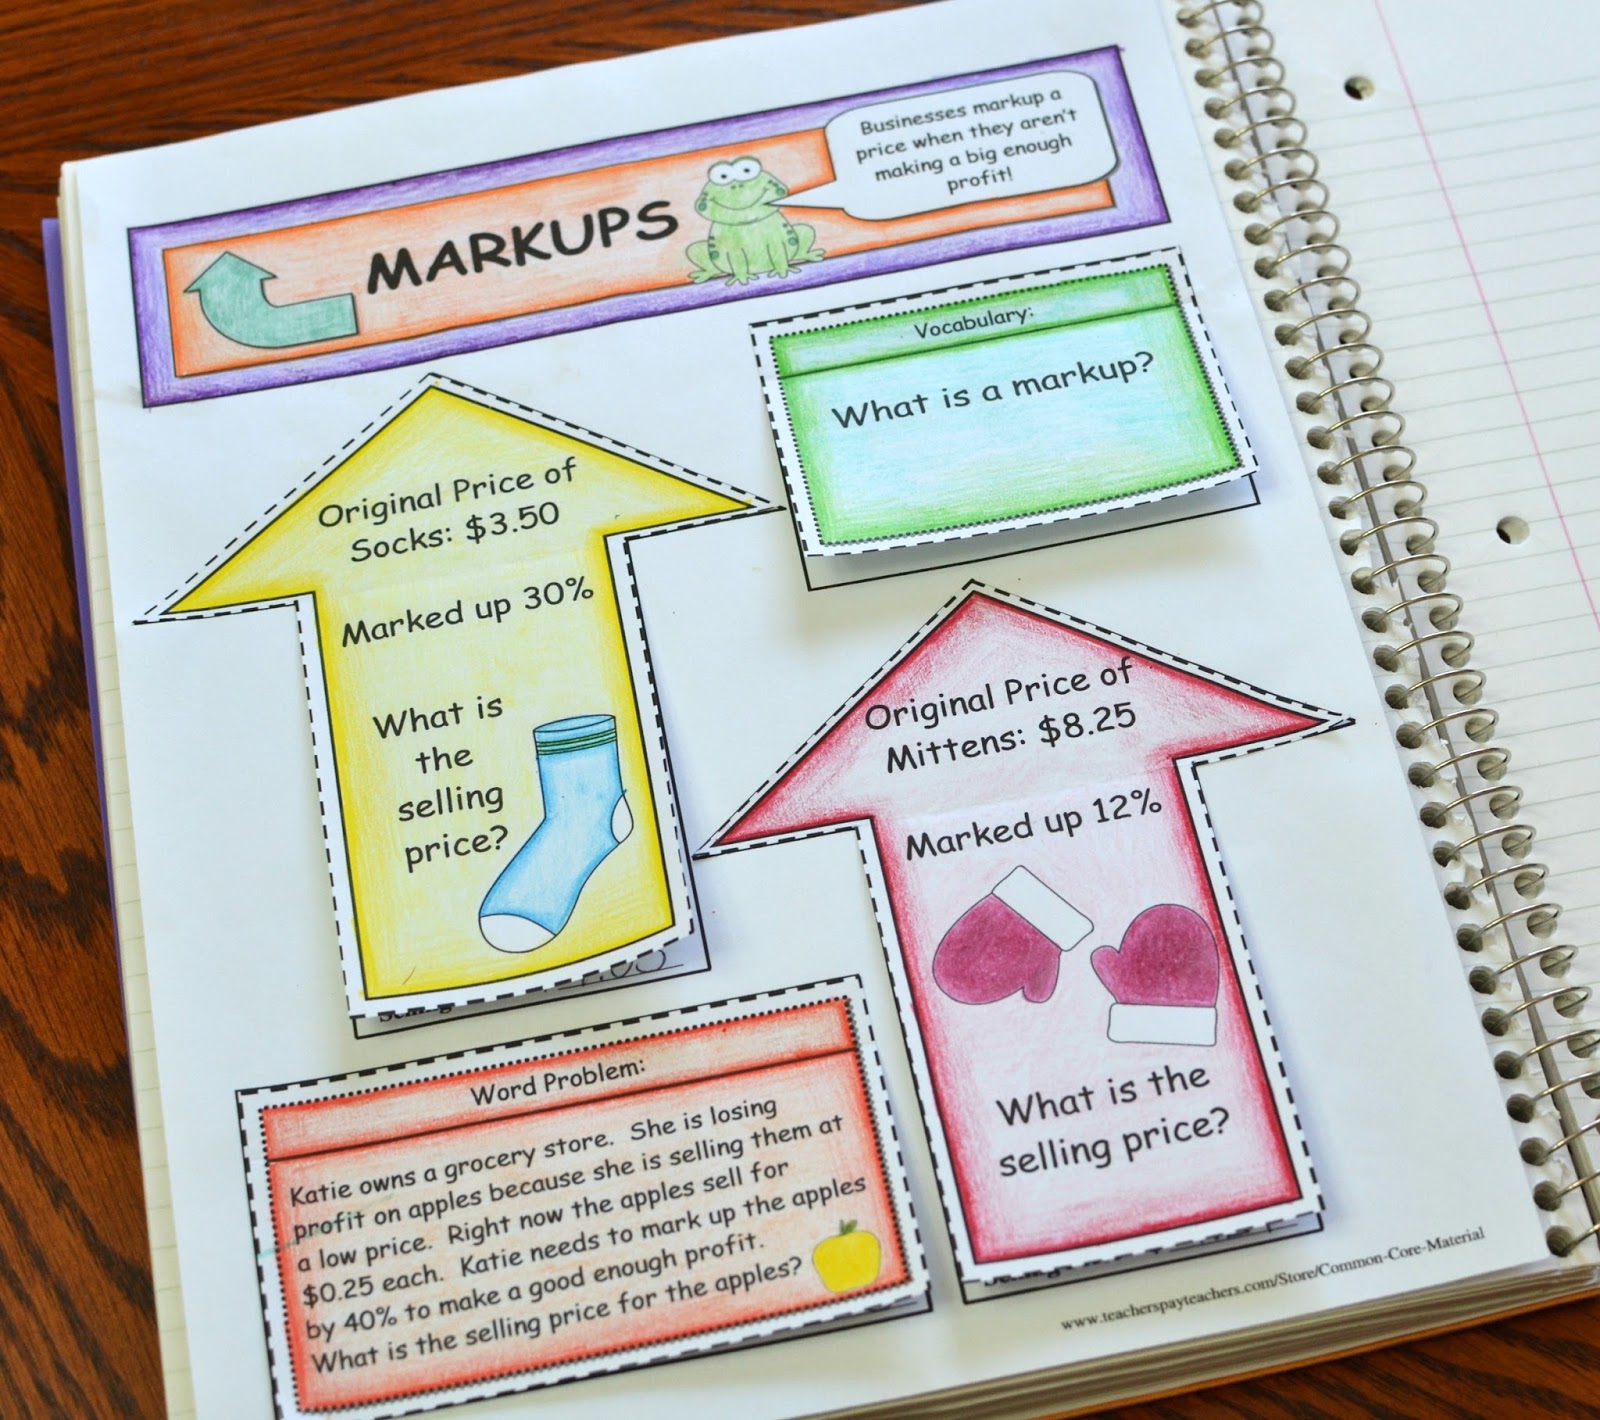 MARKUPS
Businesses markup a
price when they aren't
making a big enough
profit!
Vocabulary:
What is a markup?
Original Price of
Socks: $3.50
Marked up 30%
What is
the
selling
price?
Original Price of
Mittens: $8.25
Marked up 12%
What is the
selling price?
Word Problem:
Katie owns a grocery store. She is losing
profit on apples because she is selling them at
a low price. Right now the apples sell for
$0.25 each. Katie needs to mark up the apples
by 40% to make a good enough profit.
What is the selling price for the apples?
www.teacherspayteachers.com/Store/Common-Core-Material